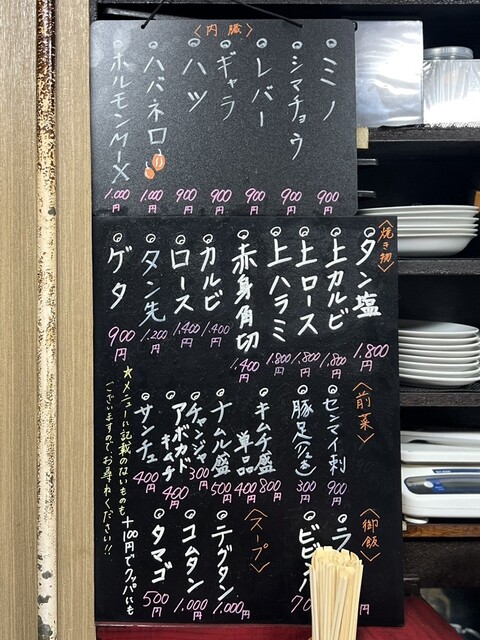 〈内臓〉
ミノ 900円
シマチョウ 900円
レバー 900円
ギャラ 900円
ハツ 900円
ハバネロ 1,000円
ホルモンMIX 1,000円
〈焼き物〉
タン塩 1,800円
上カルビ 1,800円
上ロース 1,800円
上ハラミ 1,800円
赤身角切 1,400円
カルビ 1,400円
ロース 1,400円
タン先 1,200円
ゲタ 900円
〈前菜〉
センマイ刺 900円
豚足 300円
キムチ盛 800円
単品 400円
ナムル盛 500円
チャンジャ 300円
アボカドキムチ 400円
サンチュ 400円
☆メニューに記載のないものも
ございますので、お尋ねください!!
〈御飯〉
ラ 円
ビビン 70
〈スープ〉
テグタン 1,000円
コムタン 1,000円
タマゴ 500円
+100円でクッパにも